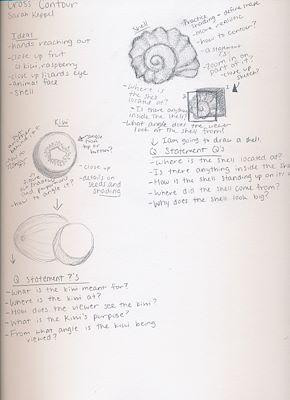 Cross Contour
Sarah Keppel
Ideas
- hands reaching out
- close up fruit
kiwi, raspberry
- close up lizards eye
- animal face
- shell
Kiwi
angle
from
top or
bottom?
- close up
- details on
seeds and
shading
how to angle it?
Q Statement ?'s
- What is the kiwi meant for?
- Where is the kiwi at?
- How does the viewer see the kiwi?
- What is the kiwi's purpose?
- From what angle is the kiwi being
viewed?
Shell
Practice
shading - define
more realistic
- how to contour?
- zoom in on
part of it?
- close up
- Where is
the shell
located at?
- Is there anything
inside the shell?
- What angle does the viewer
look at the shell from?
I am going to draw a shell.
Q Statement Q's
- Where is the shell located at?
- Is there anything inside the
- How is the shell standing up on it
- Where did the shell come from?
- Why does the shell look big?